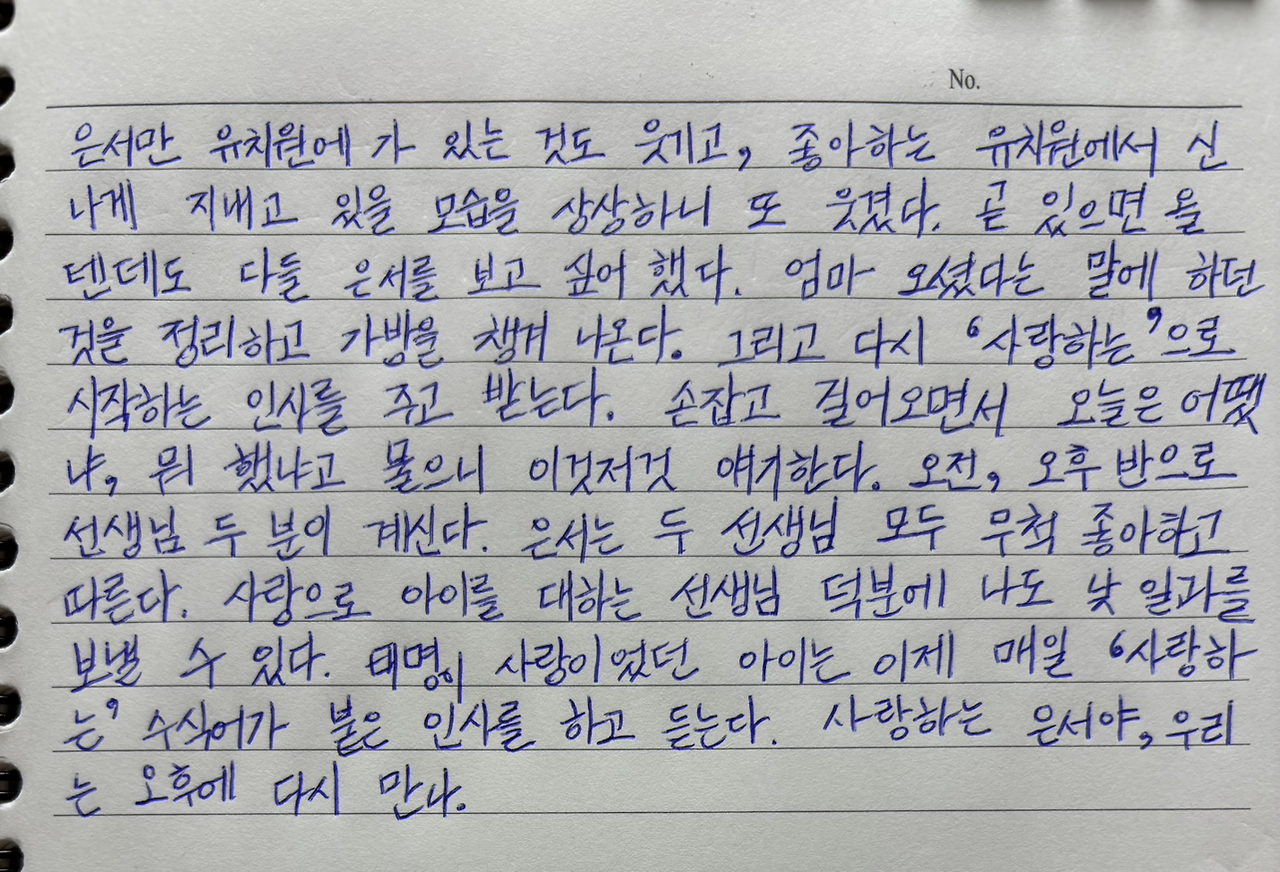 No.
은서만 유치원에 가 있는 것도 웃기고, 좋아하는 유치원에서 신
나게 지내고 있을 모습을 상상하니 또 웃겼다. 곧 있으면 올
텐데도 다들 은서를 보고 싶어 했다. 엄마 오셨다는 말에 하던
것을 정리하고 가방을 챙겨 나온다. 그리고 다시 ‘사랑하는’으로
시작하는 인사를 주고 받는다. 손잡고 걸어오면서 오늘은 어땠
냐, 뭐 했냐고 물으니 이것저것 얘기한다. 오전, 오후 반으로
선생님 두 분이 계신다. 은서는 두 선생님 모두 무척 좋아하고
따른다. 사랑으로 아이를 대하는 선생님 덕분에 나도 낮 일과를
보낼 수 있다. 태명이 사랑이었던 아이는 이제 매일 ‘사랑하
는’ 수식어가 붙은 인사를 하고 듣는다. 사랑하는 은서야, 우리
는 오후에 다시 만나.